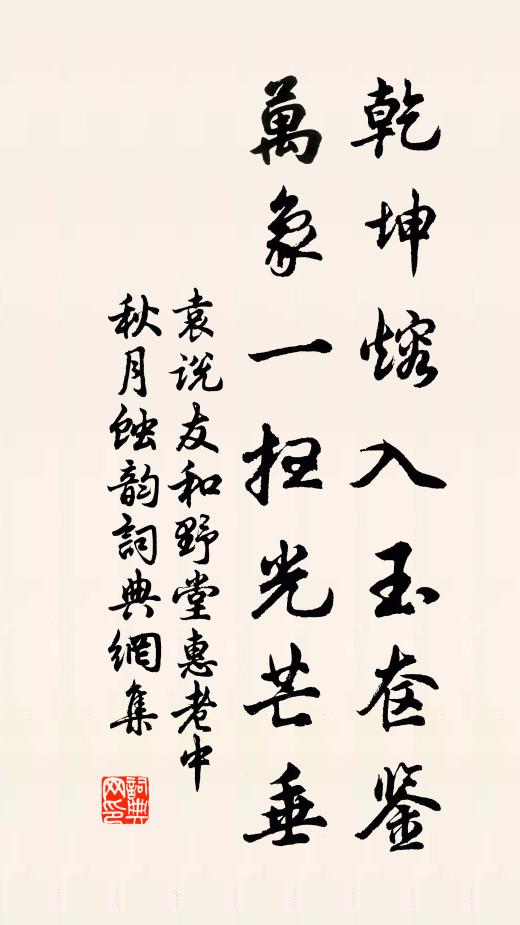 乾坤熔入玉奁鉴
萬象一扫光芒垂
袁说友和野堂惠老中
秋月蚀韵詞典網集
詞典
网印